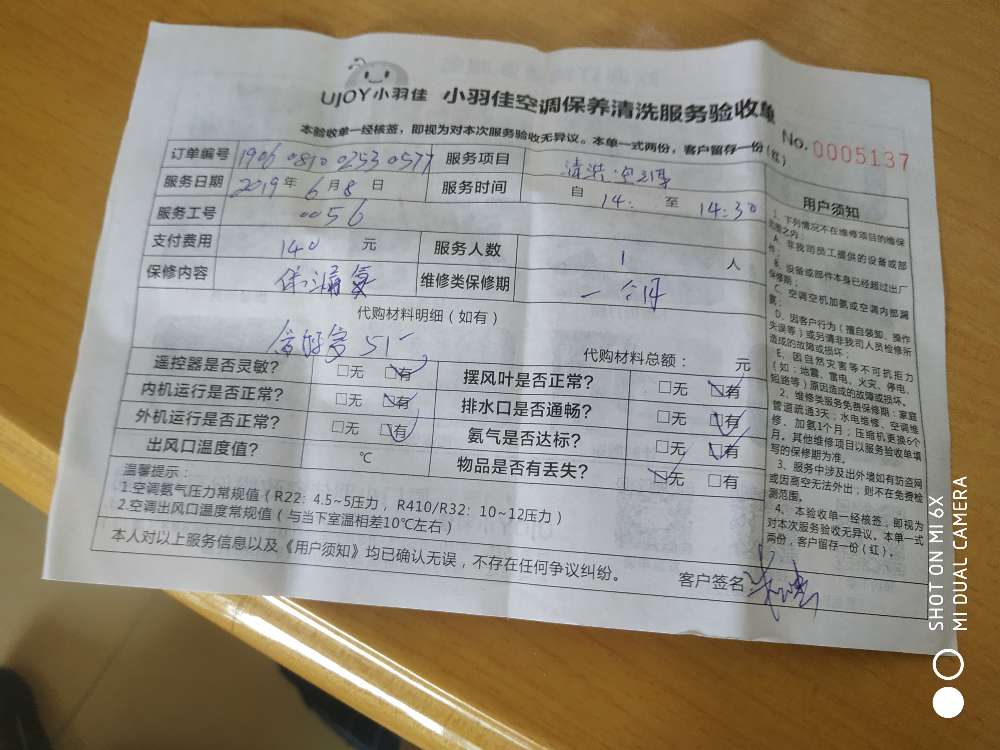 UJOY小羽佳 小羽佳空调保养清洗服务验收单
本验收单一经核签，即视为对本次服务验收无异议。本单一式两份，客户留存一份（红）
No. 0005137
订单编号 1906 0810 0253 0577 服务项目 清洗
服务日期 2019年6月8日 服务时间 自 14: 至 14:30
服务工号 0056
支付费用 140 元 服务人数 1 人
保修内容 维修类保修期 一个月
代购材料明细（如有）
51
代购材料总额： 元
遥控器是否灵敏? □无 □有 摆风叶是否正常? □无 □有
内机运行是否正常? □无 □有 排水口是否通畅? □无 □有
外机运行是否正常? □无 □有 氨气是否达标? □无 □有
出风口温度值? ℃ 物品是否有丢失? □无 □有
温馨提示：
1.空调氨气压力常规值（R22：4.5~5压力，R410/R32：10~12压力）
2.空调出风口温度常规值（与当下室温相差10℃左右）
本人对以上服务信息以及《用户须知》均已确认无误，不存在任何争议纠纷。
客户签名
用户须知
1、下列情况不在维修项目的维保
范围之内：
A、非我司员工提供的设备或部
件；
B、设备或部件本身已经超过出厂
保修期；
C、空调空机加氨或空调内部漏
氨；
D、因客户行为（擅自装卸、操作
失误等）或另请非我司人员检修所
造成的故障或损坏；
E、因自然灾害等不可抗拒力
（如：地震、雷电、火灾、停电、
短路等）原因造成的故障或损坏。
2、维修类服务免费保修期：家庭
管道疏通3天；水电维修、空调维
修、加氨1个月；压缩机更换6个
月。其他维修项目以服务验收单填
写的保修期为准。
3、服务中涉及出外墙如有防盗网
或因高空无法外出；则不在免费检
测范围。
4、本验收单一经核签，即视为
对本次服务验收无异议。本单一式
两份，客户留存一份（红）。
SHOT ON MI 6X
MI DUAL CAMERA